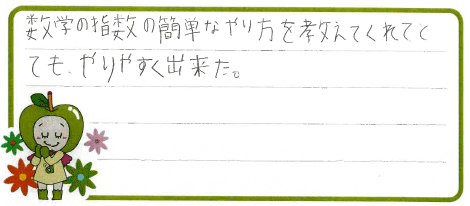 数学の指数の簡単なやり方を教えてくれてと
ても、やりやすく出来た。